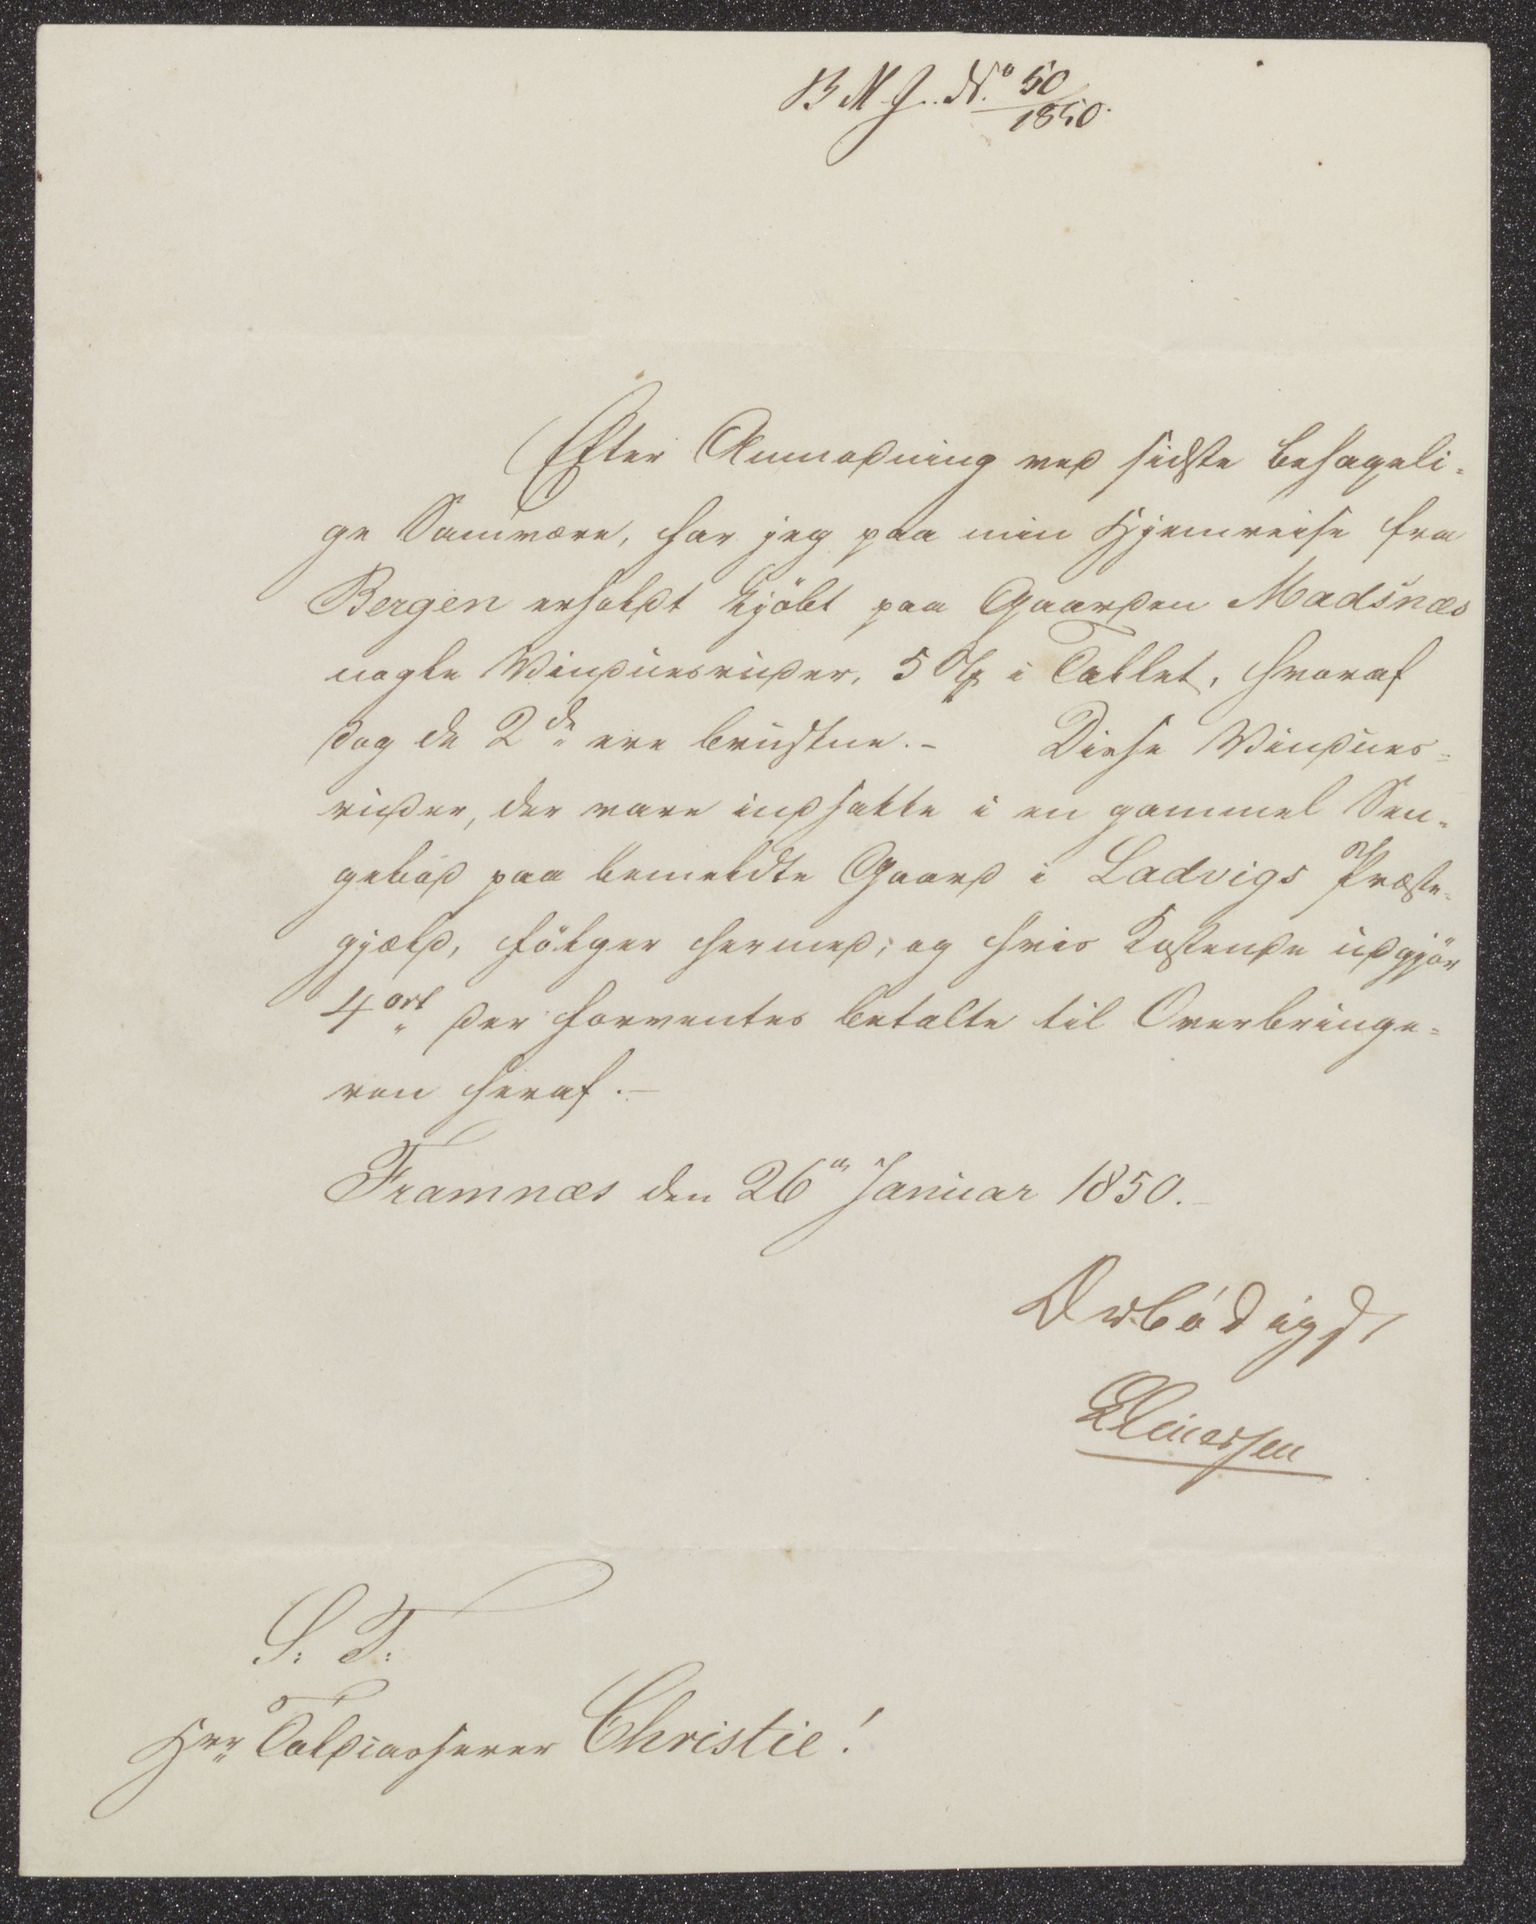 B M J. No 50/1850.
Efter Anmodning ved sidste behageli-
ge Samvære, har jeg paa min Hjemreise fra
Bergen erholdt kjöbt paa Gaarden Madsnæs
nogle Vinduesruder, 5 St i Tallet, hvoraf
dog de 2de ere brustne.- Disse Vindues-
ruder, der vare indsatte i en gammel Sen-
gebod paa bemeldte Gaard i Ladvigs Præste-
gjæld, fölger hermed; og hvis Kostende udgjör
4 ort der forventes betalte til Overbringe-
ren heraf.-
Framnæs den 26de Januar 1850.-
Ærbödigst
S. T.
Hrr Toldinasserer Christie!